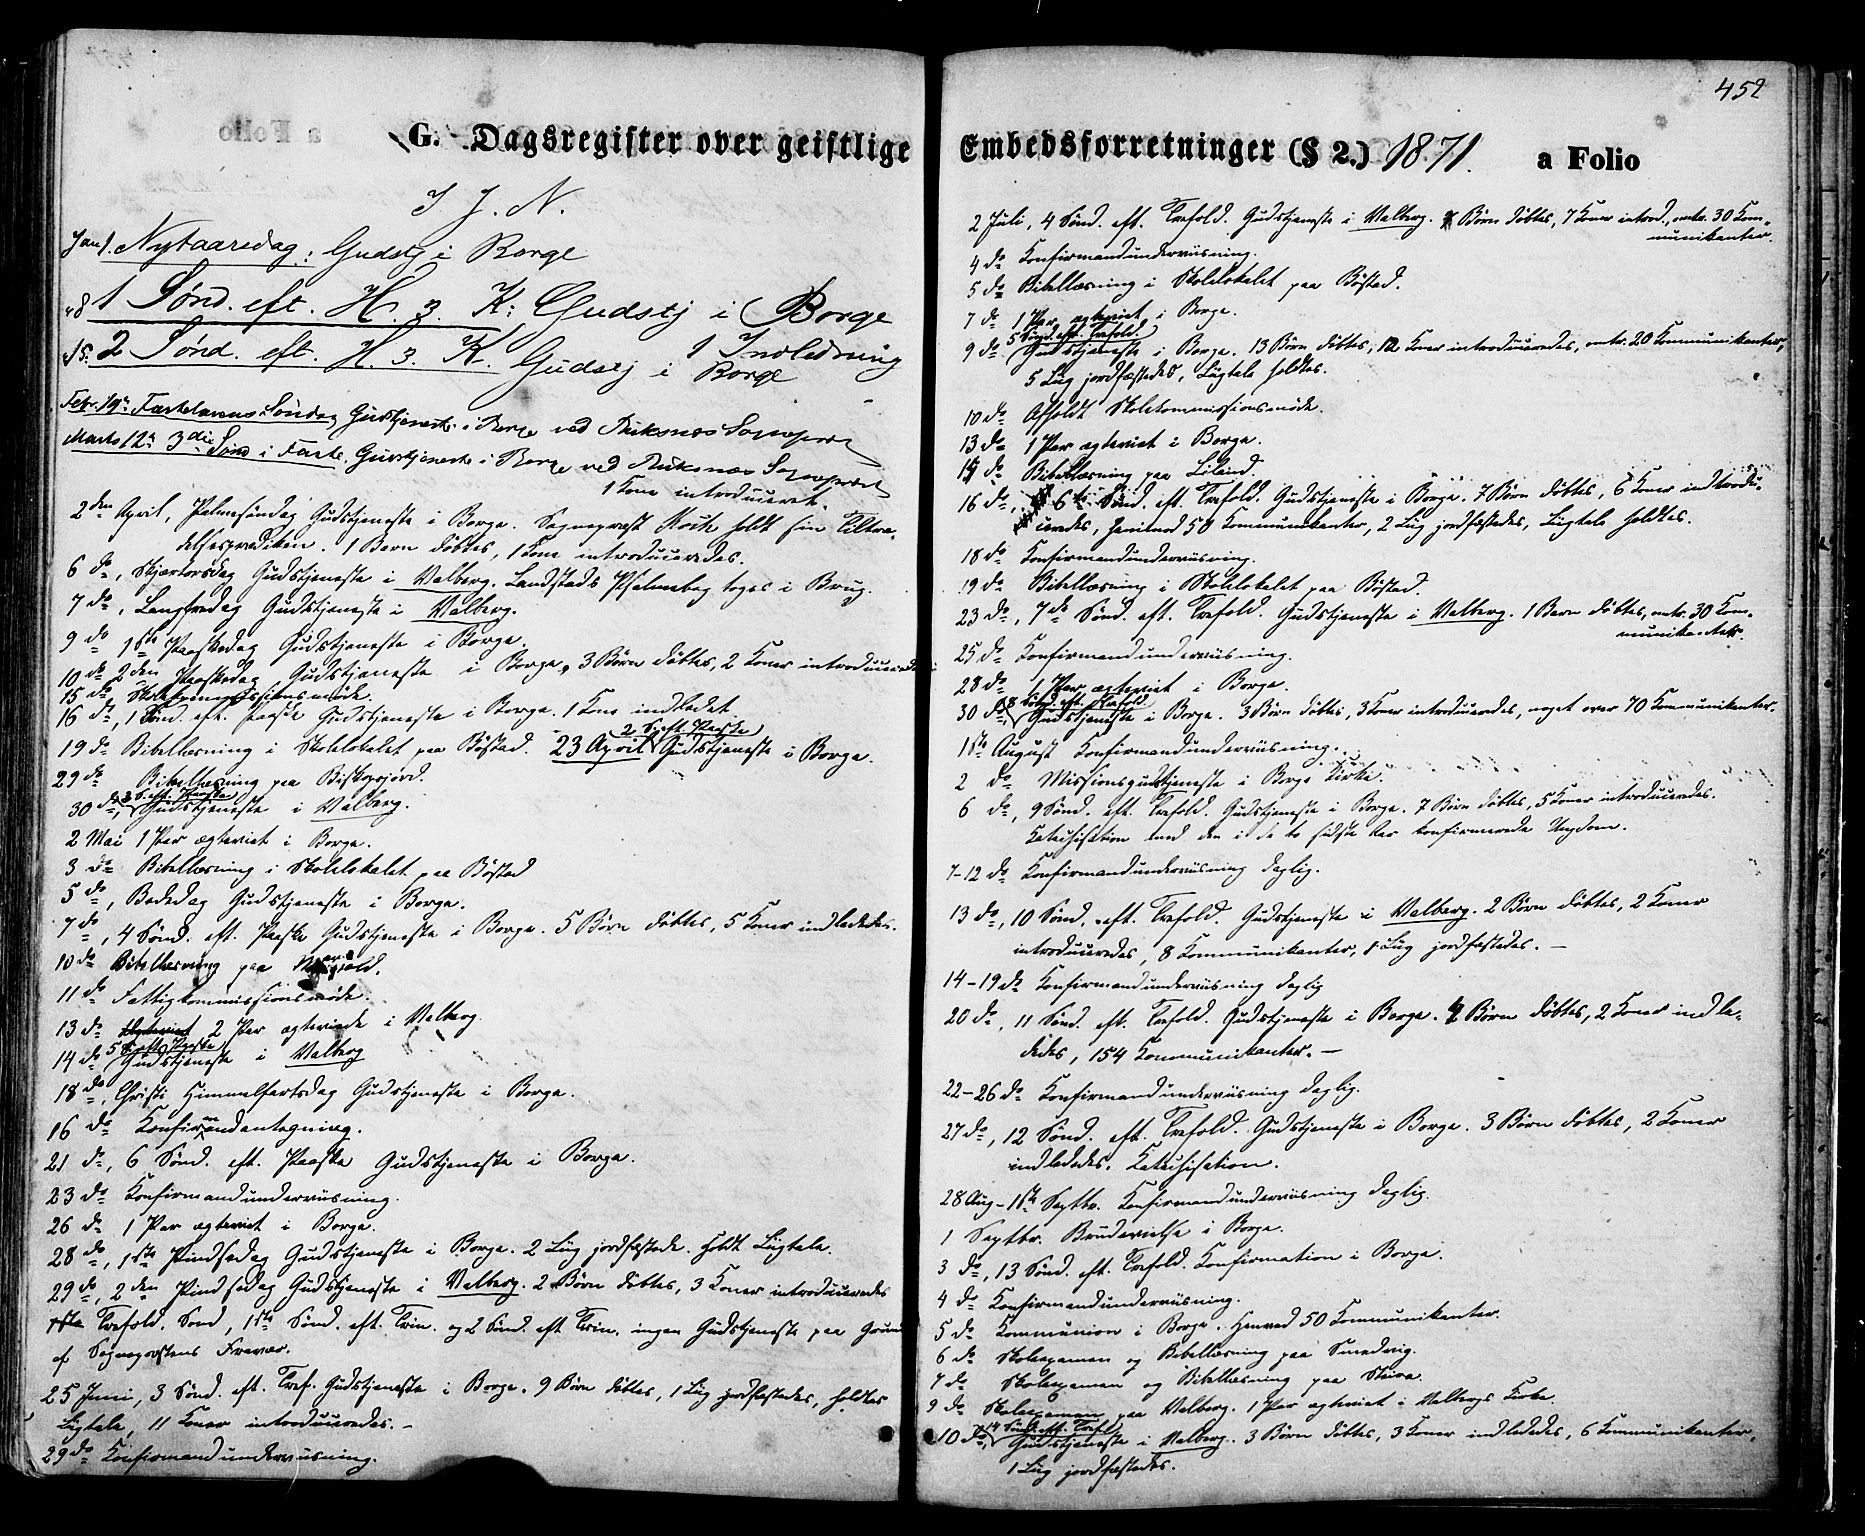 G. Dagsregister over geistlige
I J. N.
Jan 1. Nytaarsdag: Gudstj i Borge
" 8 1 Sønd. eft. H. 3. K: Gudstj i Borge
" 15. 2 Sønd. eft. H. 3. K. Gudstj i Borge 1 Indledning
Febr. 19de Fastelavns Søndag Gudstjeneste i Borge ved Buksnæs Sognepræst
Marts 12te 3die Sønd i Faste. Gudstjeneste i Borge ved Buksnæs Sognepræst
1 Kone introduceret.
2den April, Palmesøndag Gudstjeneste i Borge. Sognepræst Koch holdt sin Tiltræ-
delsesprædiken. 1 Barn døbtes, 1 Kone introduceredes.
6 do, Skjærtorsdag Gudstjeneste i Valberg. Landstads Psalmebog toges i Brug.
7 do, Langfredag Gudstjeneste i Valberg.
9 do 1ste Paaskedag Gudstjeneste i Borge.
10 do 2den Paaskedag Gudstjeneste i Borge, 3 Børn døbtes, 2 Koner introduceredes
15 do, Skolekommissionsmøde.
16 do, 1 Sønd. eft. Paaske Gudstjeneste i Borge. 1 Kone indledet.
19 do Bibellæsning i Skolelokalet paa Bøstad. 23 April 2 S. eft. Paaske Gudstjeneste i Borge.
29 do Bibellæsning paa
30 do, 3 S. eft. Paaske Gudstjeneste i Valberg.
2 Mai 1 Par ægteviet i Borge.
3 do Bibellæsning i Skolelokalet paa Bøstad
5 do, Bededag Gudstjeneste i Borge.
7 do, 4 Sønd. eft. Paaske Gudstjeneste i Borge. 5 Børn døbtes, 5 Koner indlededes.
10 do Bibellæsning paa
11 do Fattigkommissionsmøde.
13 do 2 Par ægteviede i Valberg.
14 do 5 S. eft. Paaske Gudstjeneste i Valberg
18 do, Christi Himmelfartsdag Gudstjeneste i Borge.
16 do Konfirmandantegning.
21 do, 6 Sønd. eft. Paaske Gudstjeneste i Borge.
23 do Konfirmandundervisning.
26 do 1 Par ægteviet i Borge.
28 do, 1ste Pindsedag Gudstjeneste i Borge. 2 Lig jordfæstede. Holdt Ligtale.
29 do, 2den Pindsedag Gudstjeneste i Valberg. 2 Børn døbtes, 3 Koner introduceredes
Trefold. Sønd, 1ste Sønd. eft. Trin. og 2 Sønd. eft Trin. ingen Gudstjeneste paa Grund
af Sognepræstens Fravær.
25 Juni, 3 Sønd. eft. Tref. Gudstjeneste i Borge. 9 Børn døbtes, 1 Lig jordfæstedes, holdtes
Ligtale, 11 Koner introduceredes. –
29 do Konfirmandundervisning.
452
Embedsforretninger (§ 2.) 1871. a Folio
2 Juli, 4 Sønd. eft. Trefold. Gudstjeneste i Valberg. Børn døbtes, 7 Koner introd., omtr. 30 Kom-
munikanter.
4 do Konfirmandundervisning.
5 do Bibellæsning i Skolelokalet paa Bøstad.
7 do 1 Par ægteviet i Borge.
9 do 5 Sønd. eft. Trefold. Gudstjeneste i Borge. 13 Børn døbtes, 12 Koner introduceredes, omtr. 20 Kommunikanter,
5 Lig jordfæstedes, Ligtale holdtes.
10 do Afholdt Skolekommissionsmøde.
13 do 1 Par ægteviet i Borge.
do Bibellæsning paa Liland.
16 do, 6te Sønd. eft. Trefold. Gudstjeneste i Borge. 7 Børn døbtes, 6 Koner introdu-
ceredes, henimod 50 Kommunikanter, 2 Lig jordfæstedes, Ligtale holdtes.
18 do Konfirmandundervisning.
19 do Bibellæsning i Skolelokalet paa Bøstad.
23 do, 7de Sønd. eft. Trefold. Gudstjeneste i Valberg. 1 Barn døbtes, omtr. 30 Kom-
munikanter.
25 do Konfirmandundervisning.
28 do 1 Par ægteviet i Borge.
30 do, 8 Sønd. eft. Trefold. Gudstjeneste i Borge. 3 Børn døbtes, 3 Koner introduceredes, noget over 70 Kommunikanter.
1ste August Konfirmandundervisning.
2 do Missionsgudstjeneste i Borge Kirke.
6 do, 9 Sønd. eft. Trefold. Gudstjeneste i Borge. 7 Børn døbtes, 5 Koner introduceredes.
Katechisation med den i de to sidste Aar konfirmerede Ungdom.
7-12 do Konfirmandundervisning daglig.
13 do, 10 Sønd. eft. Trefold. Gudstjeneste i Valberg. 2 Børn døbtes, 2 Koner
introduceredes, 8 Kommunikanter, 1 Lig jordfæstedes. –
14-19 do Konfirmandundervisning daglig
20 do, 11 Sønd. eft. Trefold. Gudstjeneste i Borge. Børn døbtes, 2 Koner indle-
dedes, 154 Kommunikanter. –
22-26 do Konfirmandundervisning daglig.
27 do, 12 Sønd. eft. Trefold. Gudstjeneste i Borge. 3 Børn døbtes, 2 Koner
indlededes. Katechisation.
28 Aug-1ste Septbr. Konfirmandundervisning daglig.
1 Septbr. Brudevielse i Borge.
3 do, 13 Sønd. eft. Trefold. Konfirmation i Borge.
4 do Konfirmandundervisning.
5 do Kommunion i Borge. Henved 50 Kommunikanter.
6 do Skoleexamen og Bibellæsning paa Smedvig.
7 do Skoleexamen og Bibellæsning paa
9 do Skoleexamen paa Valberg. 1 Par ægteviet i Valbergs Kirke.
10 do, 14 Sønd. eft. Tref. Gudstjeneste i Valberg. 3 Børn døbtes, 3 Koner indlededes, 6 Kommunikanter,
1 Lig jordfæstedes.